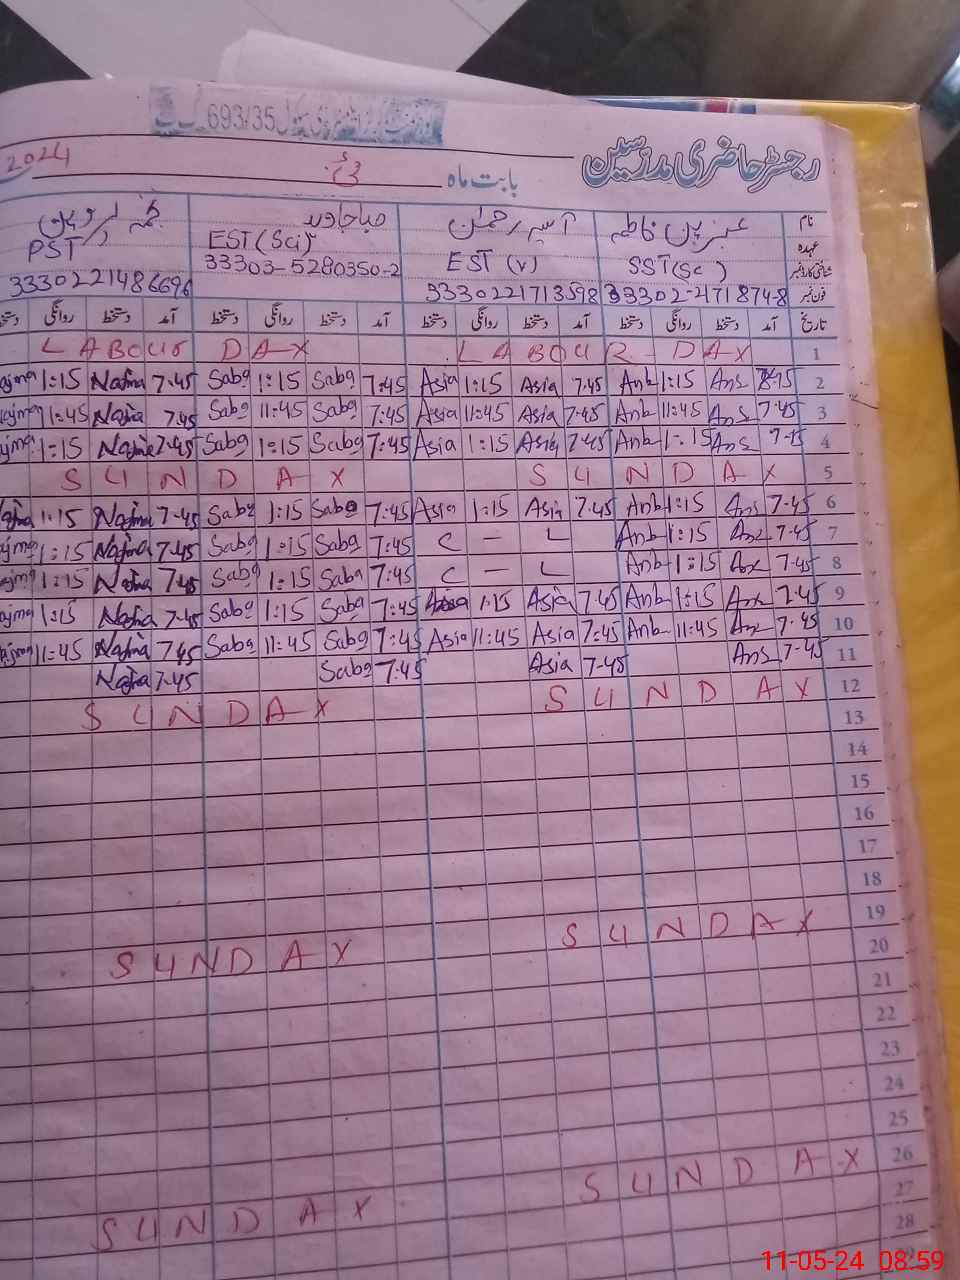 693/35
رجسٹر حاضری مدرسین
2024 بابت ماہ مئی
نام عنبرین فاطمہ آسیہ رحمٰن صباجاوید نجمہ پروین
عہدہ SST(Sc) EST (V) EST(Sci) PST
شناختی کارڈ نمبر 33303-5280350-2
فون نمبر 33302-2171874-8 3330221713598 3330221486696
تاریخ آمد دستخط روانگی دستخط آمد دستخط روانگی دستخط آمد دستخط روانگی دستخط آمد دستخط روانگی دستخط
LABOUR DAY LABOUR DAY 1
1:15 Najma 7.45 Saba 1:15 Saba 7:45 Asia 1:15 Asia 7.45 Anb 1:15 2
1:45 Najma 7.45 Saba 11:45 Saba 7:45 Asia 11:45 Asia 7.45 Anb 11:45 7.45 3
1:15 Najma 7.45 Saba 1:15 Saba 7:45 Asia 1:15 Asia 7.45 Anb 1:15 4
SUNDAY SUNDAY 5
1:15 Najma 7.45 Saba 1:15 Saba 7:45 Asia 1:15 Asia 7.45 Anb 1:15 7.45 6
1:15 Najma 7.45 Saba 1:15 Saba 7:45 C – L Anb 1:15 7.45 7
1:15 Najma 7.45 Saba 1:15 Saba 7:45 C – L Anb 1:15 7.45 8
1:15 Najma 7.45 Saba 1:15 Saba 7:45 Asia 1:15 Asia 7.45 Anb 1:15 7.45 9
11:45 Najma 7.45 Saba 11:45 Saba 7:45 Asia 11:45 Asia 7.45 Anb 11:45 7.45 10
Najma 7.45 Saba 7:45 Asia 7.45 7.45 11
SUNDAY SUNDAY 12
13
14
15
16
17
18
SUNDAY SUNDAY 19
20
21
22
23
24
25
SUNDAY SUNDAY 26
27
28
29
11-05-24 08:59